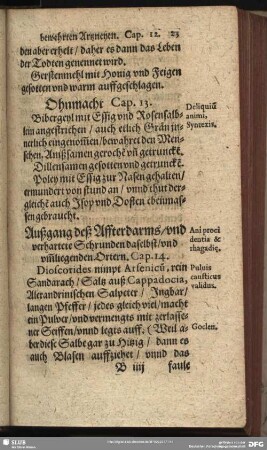 bewehrten Artzneyen. Cap. 12. 23
den aber erhelt / daher es dann das Leben
der Todten genennet wird.
Gerstenmehl mit Honig vñ Feigen
gesotten vnd warm auffgeschlagen.
Ohnmacht Cap. 13.
Deliquiũ
animi,
Syntexis.
Bibergeyl mit Essig vnd Rosensalb-
lein angestrichen / auch etlich Grän jn-
nerlich eingenom̃en / bewahret den Men-
schen. Anißsamen gerochẽ vñ getrunckẽ.
Dillensamen gesotten vnd getrunckẽ.
Poley mit Essig zur Nasen gehalten /
ermundert von stund an / vnnd thut der-
gleichẽ auch Isop vnd Dosten ebenmäs-
sen gebraucht.
Außgang deß Affterdarms / vnd
verhartete Schrunden daselbst / vnd
vmligenden Ortern. Cap. 14.
Ani proci
dentia &
rhagadię.
Dioscorides nimpt Arsenicũ, rein
Sandarach / Saltz auß Cappadocia,
Alexandrinischen Salpeter / Ingbar /
langen Pfeffer / jedes gleich viel / macht
ein Pulver / vnd vermengts mit zerlasse-
ner Seiffen / vnnd legts auff. (Weil a-
ber diese Salbe gar zu Hitzig / dann es
auch Blasen auffziehet / vnnd das
Pulvis
causticus
validus.
Goclen.
B iiij faule